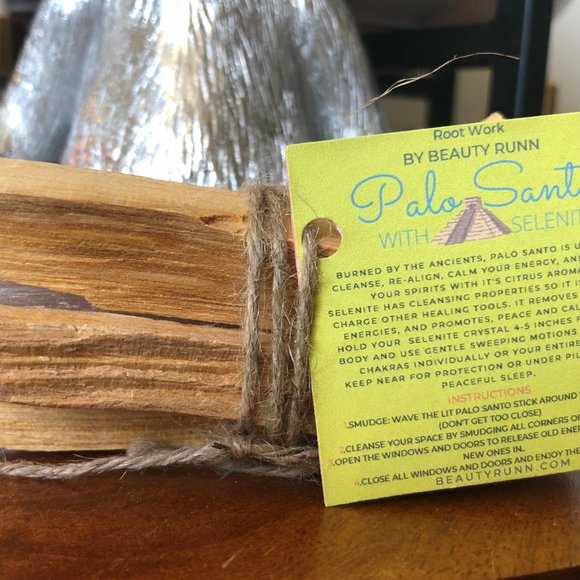 Root Work
BY BEAUTY RUNN
Palo Sant
WITH SELENIT
BURNED BY THE ANCIENTS, PALO SANTO IS U
CLEANSE, RE-ALIGN, CALM YOUR ENERGY, AN
YOUR SPIRITS WITH IT'S CITRUS AROMA
SELENITE HAS CLEANSING PROPERTIES SO IT IS
CHARGE OTHER HEALING TOOLS. IT REMOVES
ENERGIES, AND PROMOTES, PEACE AND CAL
HOLD YOUR SELENITE CRYSTAL 4-5 INCHES F
BODY AND USE GENTLE SWEEPING MOTIONS
CHAKRAS INDIVIDUALLY OR YOUR ENTIRE
KEEP NEAR FOR PROTECTION OR UNDER PIL
PEACEFUL SLEEP.
INSTRUCTIONS
1.SMUDGE: WAVE THE LIT PALO SANTO STICK AROUND
(DON'T GET TOO CLOSE)
2.CLEANSE YOUR SPACE BY SMUDGING ALL CORNERS OF
3.OPEN THE WINDOWS AND DOORS TO RELEASE OLD ENER
NEW ONES IN.
4.CLOSE ALL WINDOWS AND DOORS AND ENJOY THE
BEAUTYRUNN.COM